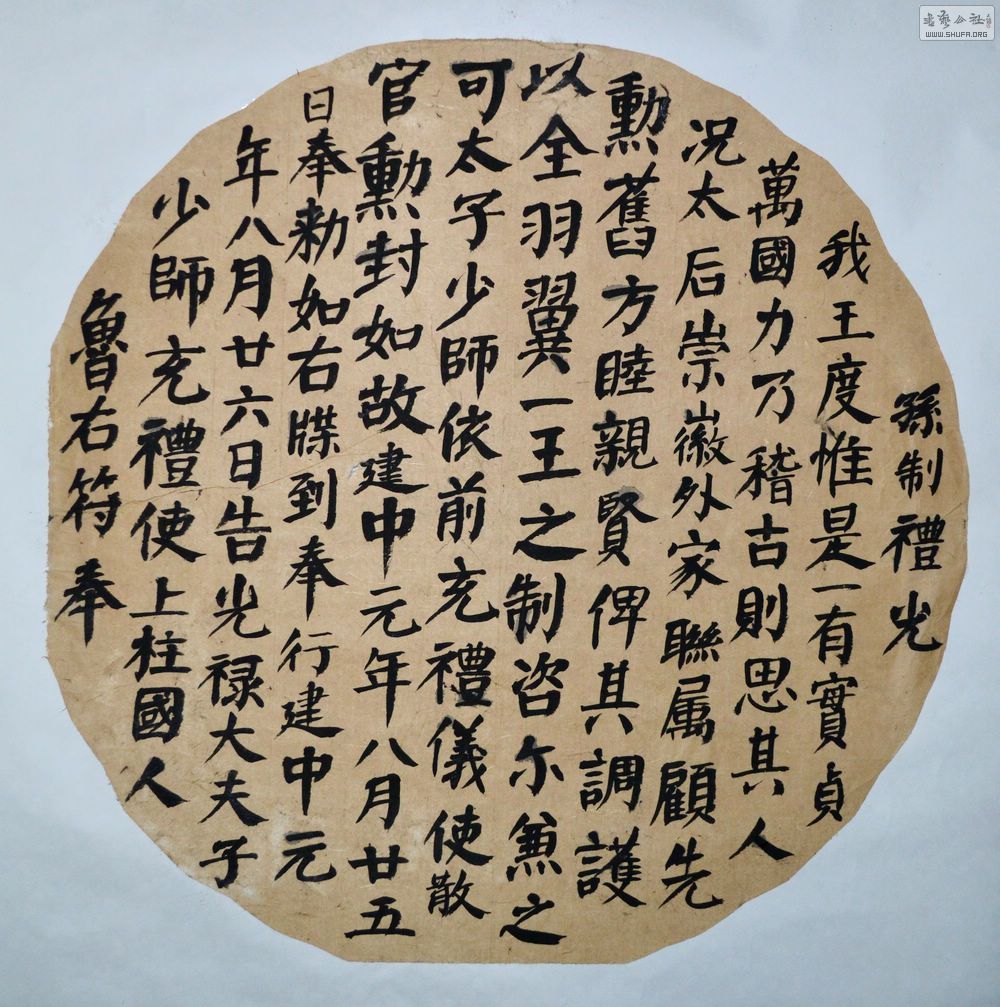 孫制禮光
我王度惟是一有實貞
萬國力乃稽古則思其人
况太后崇徽外家聯属顧先
勲舊方睦親賢俾其調護
以全羽翼一王之制咨尓兼之
可太子少師依前充禮儀使散
官勲封如故建中元年八月廿五
日奉勑如右牒到奉行建中元
年八月廿六日告光禄大夫子
少師充禮使上柱國人
魯右符奉
書藝公社
WWW.SHUFA.ORG